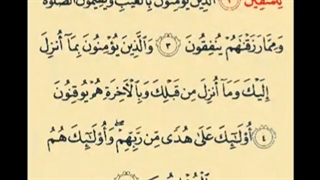 لِّلْمُتَّقِينَ ٢ ٱلَّذِينَ يُؤْمِنُونَ بِٱلْغَيْبِ وَيُقِيمُونَ ٱلصَّلَوٰةَ
وَمِمَّا رَزَقْنَٰهُمْ يُنفِقُونَ ٣ وَٱلَّذِينَ يُؤْمِنُونَ بِمَآ أُنزِلَ
إِلَيْكَ وَمَآ أُنزِلَ مِن قَبْلِكَ وَبِٱلْأَخِرَةِ هُمْ يُوقِنُونَ
٤ أُو۟لَٰٓئِكَ عَلَىٰ هُدًى مِّن رَّبِّهِمْ ۖ وَأُو۟لَٰٓئِكَ هُمُ